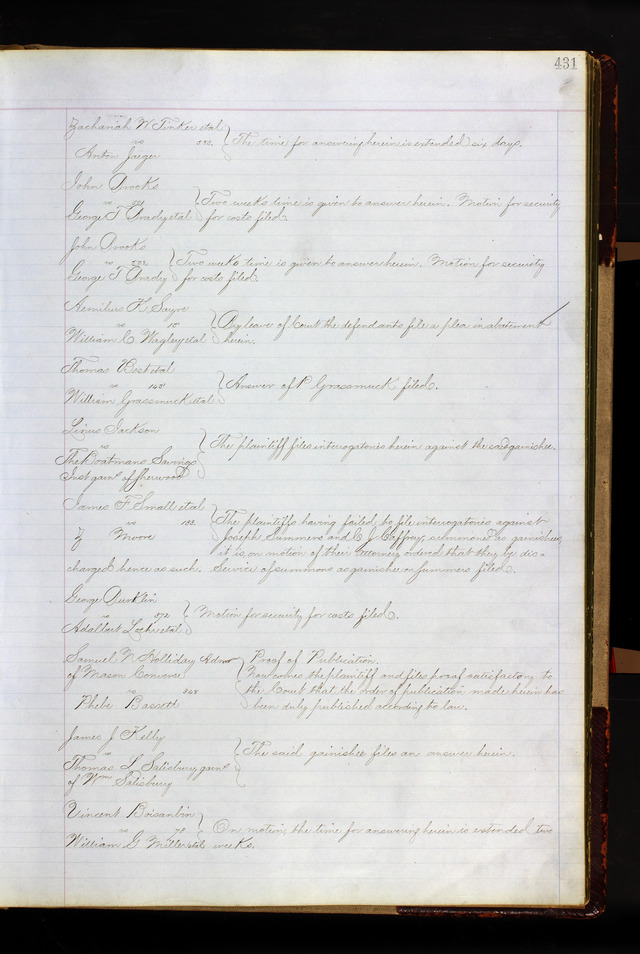 431
Zachariah W Tinker etal
vs 332. The time for answering herein is extended six days.
Anton Jaeger
John Brooks
vs 531 Two weeks time is given to answer herein. Motion for security
George T Bradyetal for costs filed.
John Brooks
vs 532 Two weeks time is given to answer herein. Motion for security
George T Brady for costs filed.
Aemilius K Sayre
vs By leave of Court the defendants file a plea in abatement
William C Wagleyetal herein.
Thomas etal
vs Answer of P Grassmuck filed.
William Grassmucketal
Linus Jackson
vs The plaintiff files interrogatories herein against the said garnishee.
The Boatmans Savings
Inst garn. of Sherwood
James F Small etal
vs 133. The plaintiffs having failed to file interrogatories against
Moore Joseph Summers and C J Caffray, summoned as garnishees,
it is, on motion of their attorney, ordered that they be dis-
charged hence as such. Service of summons as garnishee on Summers filed.
George Durklin
vs 572 Motion for security for costs filed.
Adalbert etal
Samuel N Holliday Admr Proof of Publication.
of Mason Converse Now comes the plaintiff and files proof satisfactory to
vs the Court that the order of publication made herein has
Phebe Bassett been duly published according to law.
James J Kelly
vs The said garnishee files an answer herein.
Thomas L Salisbury, garn.
of Wm Salisbury
Vincent Boisaubin
vs 78 On motion, the time for answering herein is extended two
William G Milleretal weeks.